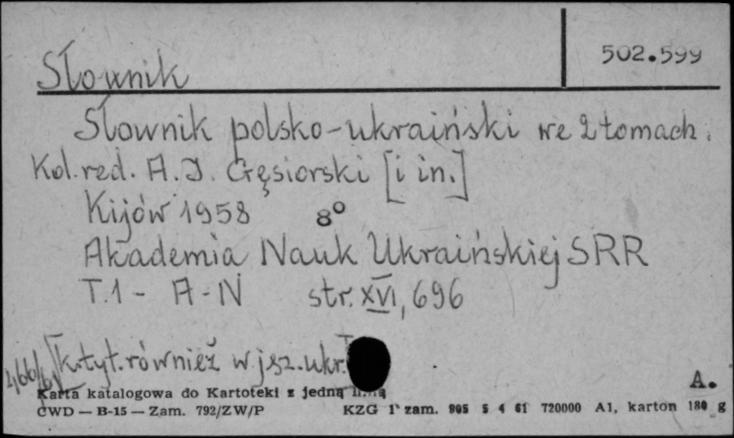 502.599
Słownik
Słownik polsko-ukraiński we 2 tomach.
Kol. red. A. I. Gęsiorski [i in.]
Kijów 1958 8°
Akademia Nauk Ukraińskiej SRR
T.1 - A-N str. XVI, 696
[k. tyt. również w jęz. ukr.]
A.
Karta katalogowa do Kartoteki z jedną
CWD — B-15 — Zam. 792/ZW/P KZG 1 zam. 905 5 4 61 720000 A1, karton 180 g